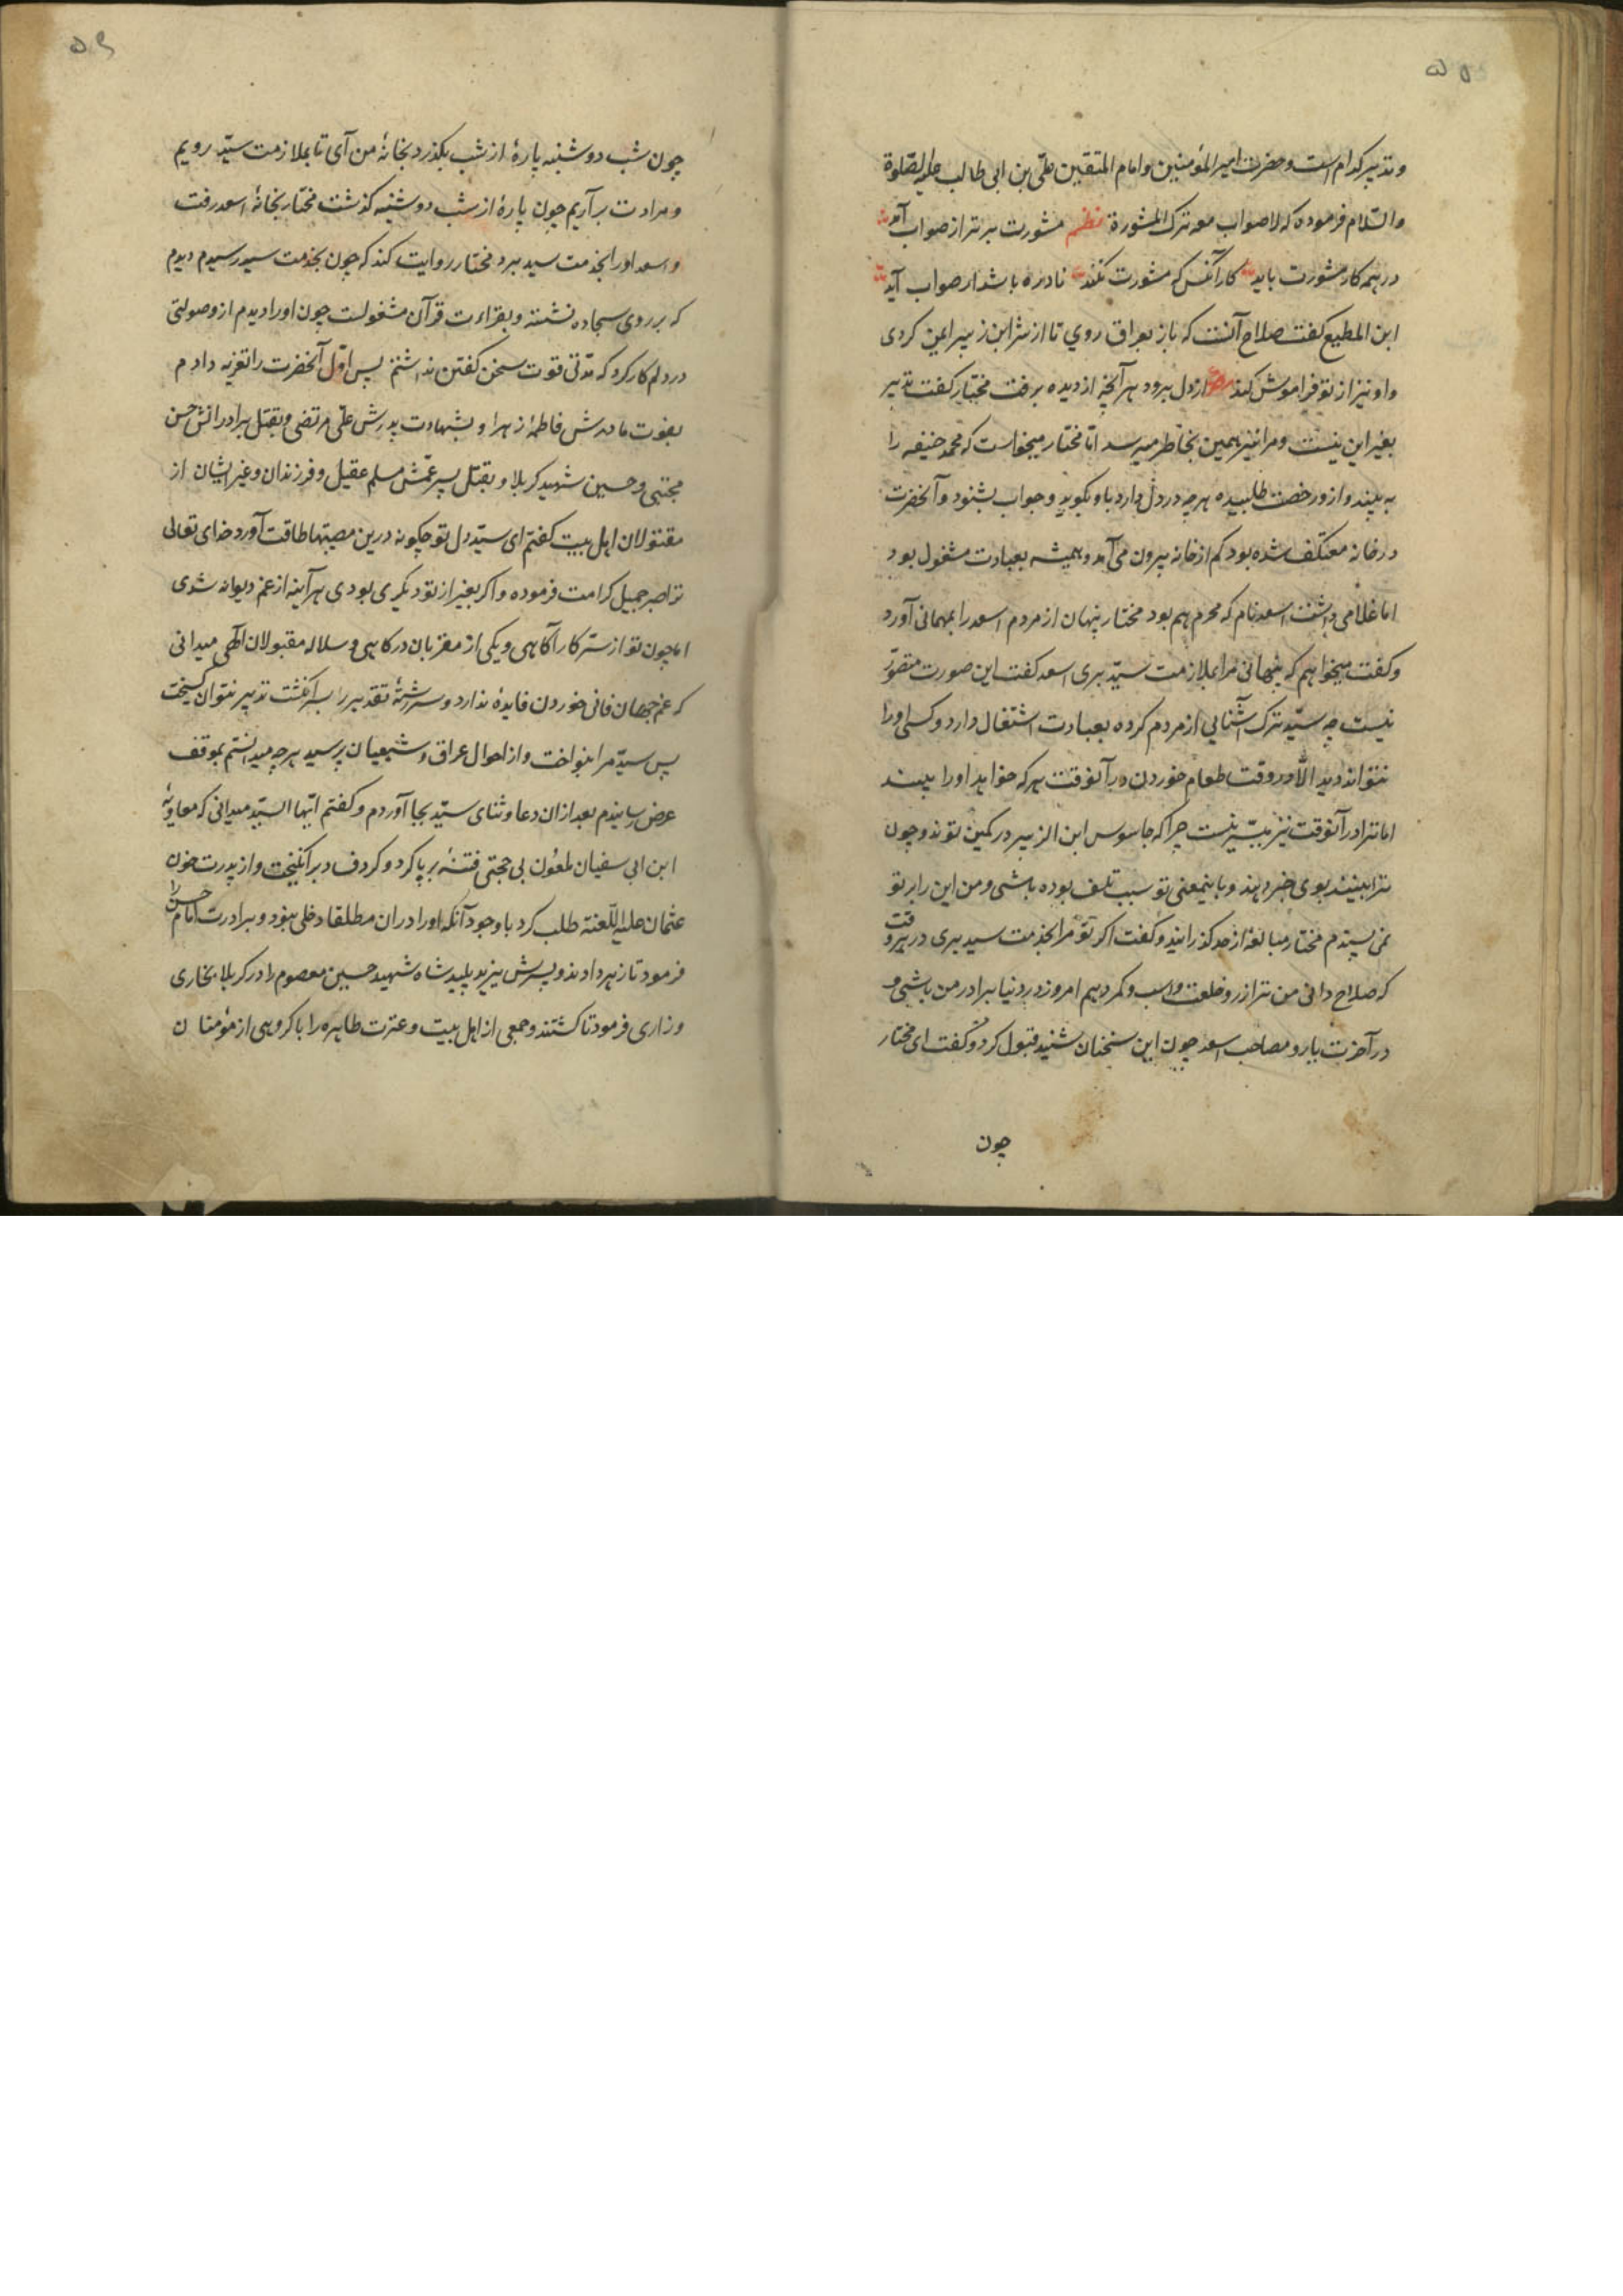 و تدبیر کدام است و حضرت امیر المؤمنین و امام المتقین علی بن ابی طالب علیه الصلوة
والسّلام فرموده که لا صواب مع ترک المشورة نظم مشورت برتر از صواب آمد
در همه کار مشورت باید کار آنکس که مشورت نکند نادره باشد ار صواب آید
ابن المطیع کفت صلاح آنست که باز بعراق روی تا از شر ابن زبیر ایمن کردی
و او نیز از تو فراموش کند مصرع از دل برود هر آنچه از دیده برفت مختار کفت تدبیر
بغیر این نیست و مرا نیز همین بخاطر میرسد امّا مختار میخواست که محمد حنیفه را
به بیند و از و رخصت طلبیده هرچه در دل دارد با و بکوید و جواب بشنود و آنحضرت
در خانه معتکف شده بود کم از خانه بیرون می آمد و همیشه بعبادت مشغول بود
اما غلامی داشت اسعد نام که محرم هم بود مختار پنهان از مردم اسعد را بمهمانی آورد
و کفت میخواهم که پنهانی مرا بملازمت سیّد بری اسعد کفت این صورت متصوّر
نیست چه سیّد ترک آشنایی از مردم کرده بعبادت اشتغال دارد و کسی او را
نتواند دید الّا در وقت طعام خوردن در آنوقت هر که خواهد او را ببیند
اما ترا در آنوقت نیز میسّر نیست چرا که جاسوس ابن الزبیر در کمین تواند و چون
ترا بینند بوی خبر دهند و باینمعنی تو سبب تلف بوده باشی و من این را بر تو
نمی پسندم مختار مبالغه از حد کذرانید و کفت اکر تو مرا بخدمت سید بری در هر وقت
که صلاح دانی من ترا زر و خلعت و اسب و کمر دهم امروز در دنیا برادر من باشی و
در آخرت یار و مصاحب اسعد چون این سخنان شنید قبول کرد و کفت ای مختار
چون
چون شب دوشنبه پارهٔ از شب بکذرد بخانهٔ من آی تا بملازمت سیّد رویم
و مرادت برآریم چون پارهٔ از شب دوشنبه کذشت مختار بخانهٔ اسعد رفت
و اسعد او را بخدمت سید برد مختار روایت کند که چون بخدمت سید رسیدم دیدم
که بر روی سجاده نشسته و بقراءت قرآن مشغولست چون او را دیدم از و صولتی
در دلم کار کرد که مدّتی قوت سخن کفتن نداشتم پس اوّل آنحضرت را تعزیه دادم
بفوت مادرش فاطمهٔ زهرا و بشهادت پدرش علی مرتضی و بقتل برادرانش حسن
مجتبی و حسین شهید کربلا و بقتل پسر عمّش مسلم عقیل و فرزندان و غیر ایشان از
مقتولان اهل بیت کفتم ای سیّد دل تو چکونه درین مصیبتها طاقت آورد خدای تعالی
ترا صبر جمیل کرامت فرموده و اکر بغیر از تو دیکری بودی هر آینه از غم دیوانه شدی
اما چون تو از ستر کار آکاهی و یکی از مقربان درکاهی و سلاله مقبولان الهی میدانی
که غم جهان فانی خوردن فایدهٔ ندارد و سررشتهٔ تقدیر را بسر انکشت تدبیر نتوان کسیخت
پس سیّد مرا بنواخت و از احوال عراق و شیعیان پرسید هرچه میدانستم بموقف
عرض رسانیدم بعد از ان دعا و ثنای سیّد بجا آوردم و کفتم ایّها السیّد میدانی که معاویه
ابن ابی سفیان ملعون بی حجتی فتنهٔ برپا کرد و کرد فساد برانکیخت و از پدرت خون
عثمان علیه اللّعنة طلب کرد باوجود آنکه او را دران مطلقا دخلی نبود و برادرت امام حسن را
فرمود تا زهر دادند و پسرش یزید پلید شاه شهید حسین معصوم را در کربلا بخاری
و زاری فرمود تا کشتند و جمعی از اهل بیت و عترت طاهره را با کروهی از مؤمنان